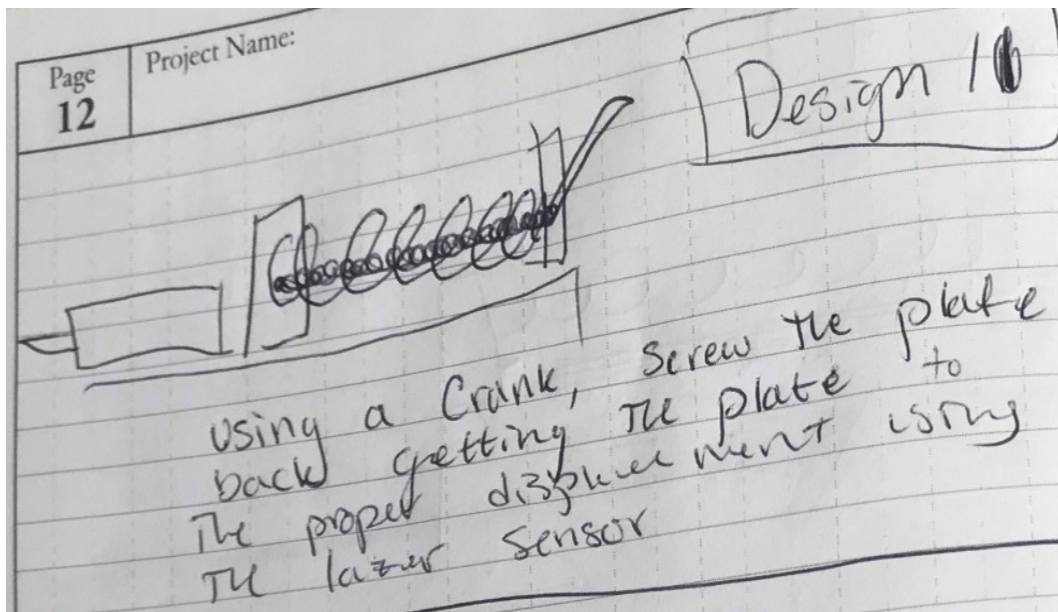 Page
12
Project Name:
Design 1
using a Crank, screw the plate
back getting the plate to
the proper displacement using
the lazer sensor